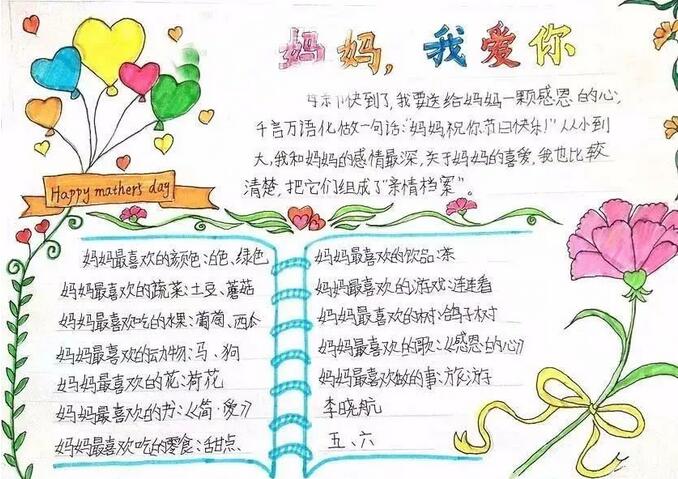 妈妈,我爱你
母亲节快到了,我要送给妈妈一颗感恩的心,
千言万语化做一句话:“妈妈祝你节日快乐!”从小到
大,我和妈妈的感情最深,关于妈妈的喜爱,我也比较
清楚,把它们组成了“亲情档案”。
Happy mather's day
妈妈最喜欢的颜色:白色、绿色
妈妈最喜欢的蔬菜:土豆、蘑菇
妈妈最喜欢吃的水果:葡萄、西瓜
妈妈最喜欢的动物:马、狗
妈妈最喜欢的花:荷花
妈妈最喜欢的书:《简·爱》
妈妈最喜欢吃的零食:甜点
妈妈最喜欢的饮品:茶
妈妈最喜欢的游戏:连连看
妈妈最喜欢的树:鸽子树
妈妈最喜欢的歌:《感恩的心》
妈妈最喜欢做的事:旅游
李晓航
五、六